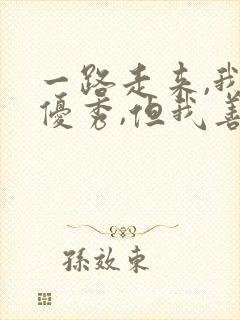 一路走来,我
優秀,但我善
孫效東